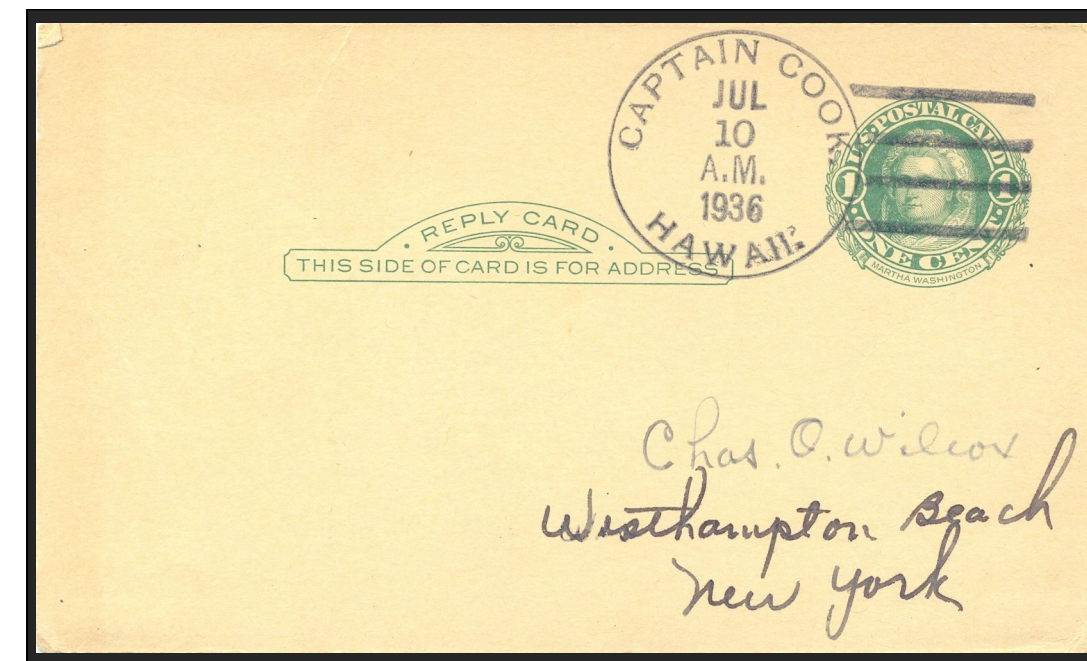 CAPTAIN COOK
JUL
10
A.M.
1936
HAWAII.
U.S. POSTAL CARD
1 1
ONE CENT
MARTHA WASHINGTON
REPLY CARD
THIS SIDE OF CARD IS FOR ADDRESS
Chas. O. Wilcox
Westhampton Beach
New York